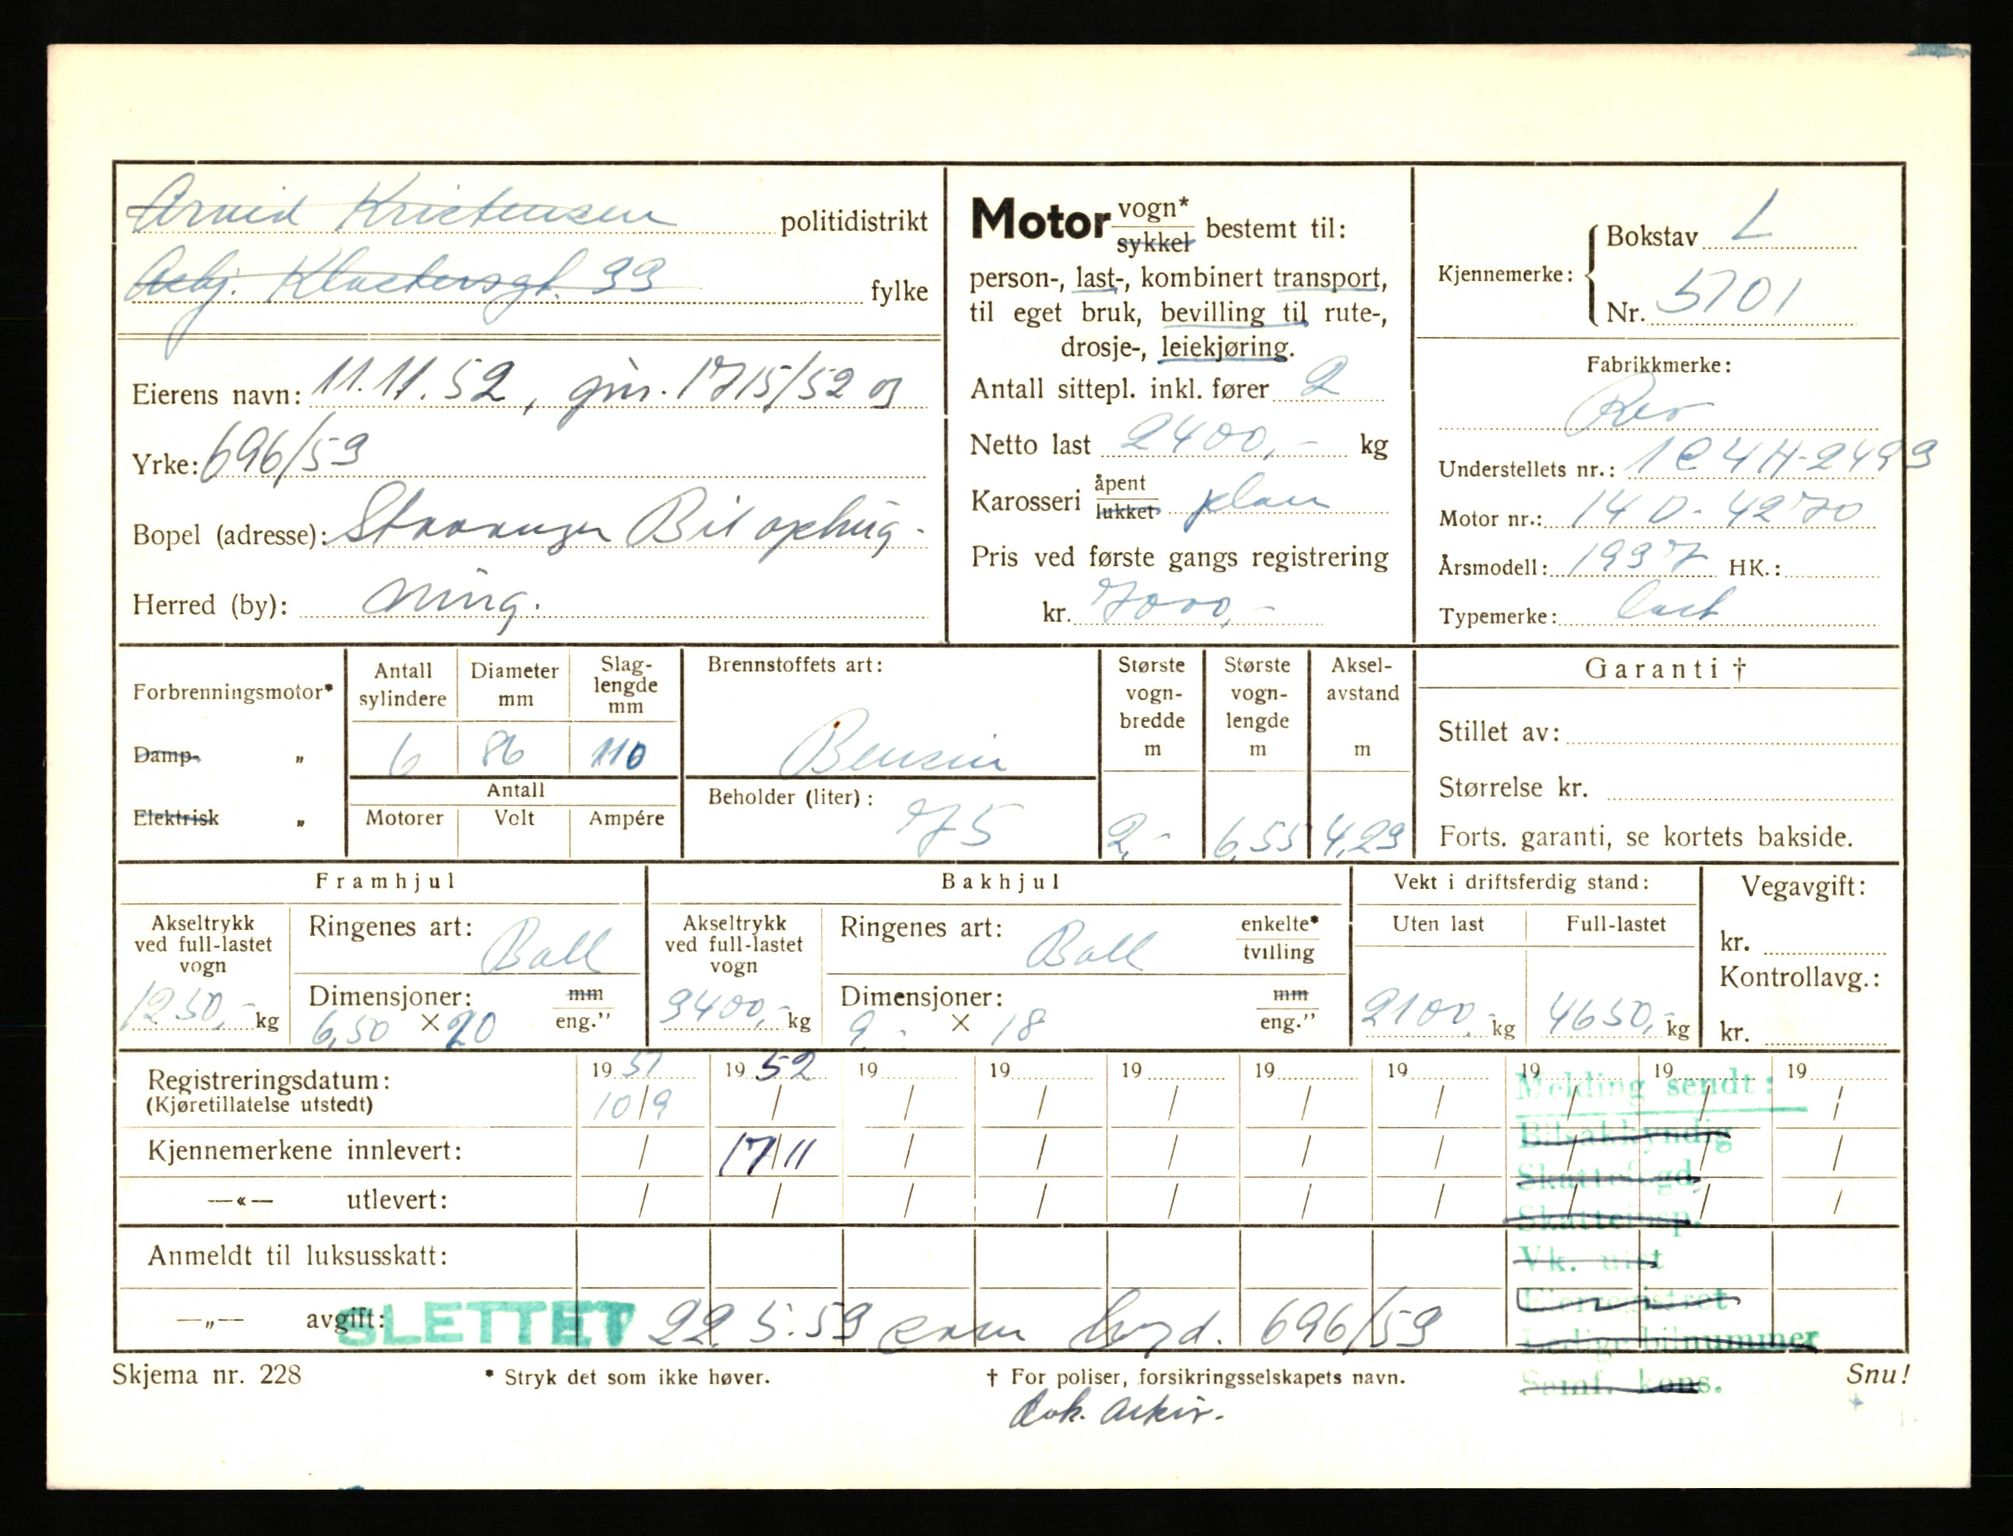 Arvid Kristensen politidistrikt
Asbj. Klostersgt. 33 fylke
Eierens navn: 11.11.52, gjm. 1715/52 og
Yrke: 696/59
Bopel (adresse): Stavanger Bil ophug-
Herred (by): ning.
Motor vogn* sykkel bestemt til:
person-, last-, kombinert transport,
til eget bruk, bevilling til rute-,
drosje-, leiekjøring.
Antall sittepl. inkl. fører 2
Netto last 2400,- kg
Karosseri åpent lukket plan
Pris ved første gangs registrering
kr. 7000,-
Kjennemerke: Bokstav L
Nr. 5701
Fabrikkmerke:
Reo
Understellets nr.: 1C4H-2499
Motor nr.: 14D-4270
Årsmodell: 1937 HK.:
Typemerke: last
Forbrenningsmotor*
Damp- „
Elektrisk „
Antall sylindere 6
Diameter mm 86
Slag-lengde mm 110
Antall
Motorer Volt Ampére
Brennstoffets art:
Bensin
Beholder (liter): 75
Største vogn-bredde m 2,-
Største vogn-lengde m 6,55
Aksel-avstand m 4,29
Garanti †
Stillet av:
Størrelse kr.
Forts. garanti, se kortets bakside.
Framhjul
Akseltrykk ved full-lastet vogn 1250,- kg
Ringenes art: Ball
Dimensjoner: mm
6,50 × 20 eng.”
Bakhjul
Akseltrykk ved full-lastet vogn 3400,- kg
Ringenes art: Ball enkelte* tvilling
Dimensjoner: mm
9 - × 18 eng.”
Vekt i driftsferdig stand:
Uten last 2100,- kg
Full-lastet 4650,- kg
Vegavgift:
kr.
Kontrollavg.:
kr.
Registreringsdatum: 19 51 19 52 19 19 19 19 19 19 19 19
(Kjøretillatelse utstedt) 10/9 / / / / / / / / /
Kjennemerkene innlevert: / 17/11 / / / / / / / /
—«— utlevert: / / / / / / / / / /
Anmeldt til luksusskatt:
—„— avgift: SLETTET 22.5.59 som hugd. 696/59
Melding sendt:
Bilsakkyndig
Skattefogd.
Skatteinsp.
Vk. mist
Eierregistret
Ledige bilnummer
Samf. kons.
Skjema nr. 228 * Stryk det som ikke høver. † For poliser, forsikringsselskapets navn. Snu!
dok. arkiv.